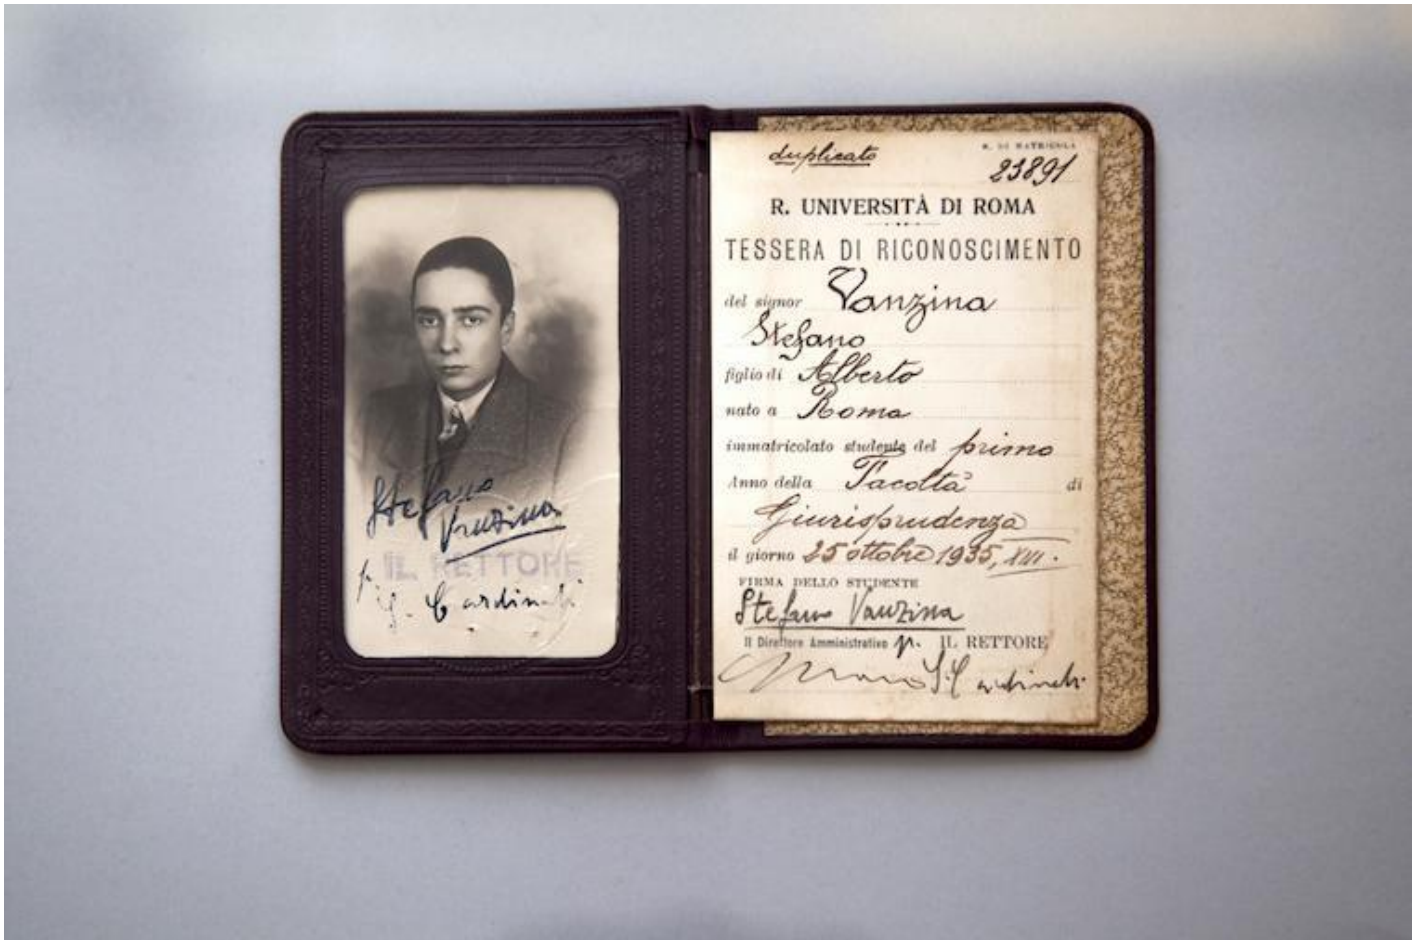 Stefano
Vanzina
IL RETTORE
p. S. Cardinali
duplicato
N. DI MATRICOLA
23891
R. UNIVERSITÀ DI ROMA
TESSERA DI RICONOSCIMENTO
del signor Vanzina
Stefano
figlio di Alberto
nato a Roma
immatricolato studente del primo
Anno della Facoltà di
Giurisprudenza
il giorno 25 ottobre 1935, XIII.
FIRMA DELLO STUDENTE
Stefano Vanzina
Il Direttore Amministrativo p. IL RETTORE
S. Cardinali